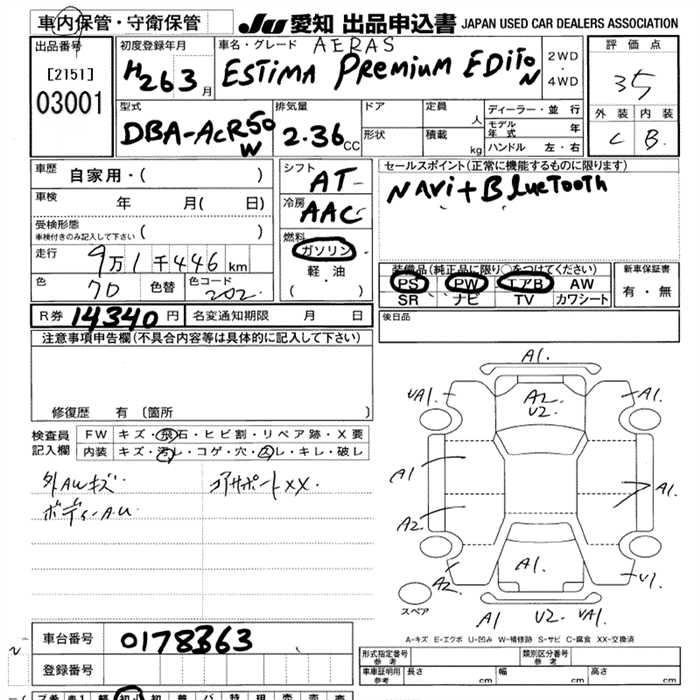 車内保管・守衛保管
JU 愛知 出品申込書 JAPAN USED CAR DEALERS ASSOCIATION
出品番号
[2151]
03001
初度登録年月
H26 3 月
車名・グレード AERAS
ESTIMA PREMIUM EDITON
2WD
・
4WD
評価点
35
外装 内装
C B
型式
DBA-ACR50W
排気量
2.36 CC
ドア
形状
定員
人
積載
kg
ディーラー・並行
モデル年式 年
ハンドル 左・右
車歴
自家用・( )
車検 年 月( 日)
受検形態
車検付きのみ記入して下さい ( )
走行
9万1千446km
色
70
色替
色コード
202
シフト
AT
冷房
AAC
燃料
ガソリン
軽油
( ・ )
セールスポイント(正常に機能するものに限ります)
NAVi+BLUETOOTH
装備品(純正品に限り○をつけてください)
PS PW エアB AW
SR ナビ TV カワシート
新車保証書
有・無
R券 14340 円
名変通知期限 月 日
後日品
注意事項申告欄(不具合内容等は具体的に記入して下さい)
修復歴 有 (箇所 )
検査員
記入欄
FW キズ・飛石・ヒビ割・リペア跡・X要
内装 キズ・汚レ・コゲ・穴・スレ・キレ・破レ
外AUキズ
ボディーAU
コアサポートXX
A1.
UA1. A2 U2 A1.
A1 A1.
A2
A2 A1. U1
スペア
A1 U2 UA1.
A-キズ E-エクボ U-凹み W-補修跡 S-サビ C-腐食 XX-交換済
車台番号
0178363
登録番号
形式指定番号
参考
類別区分番号
参考
車庫証明用
参考
長さ cm
幅 cm
高さ cm